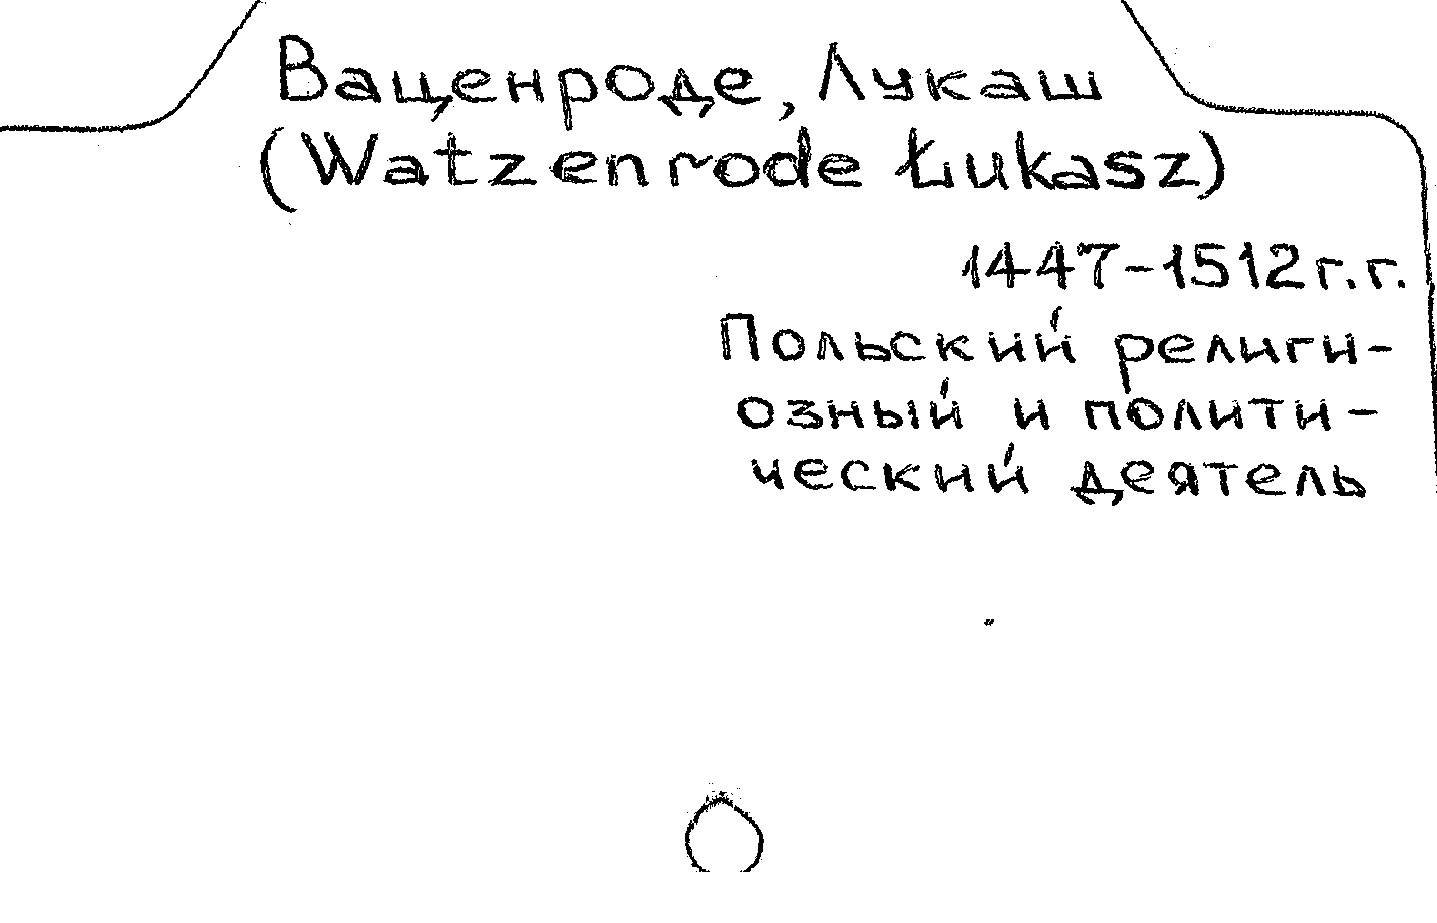 Ваценроде, Лукаш
(Watzenrode Łukasz)
1447-1512г.г.
Польский религи-
озный и полити-
ческий деятель